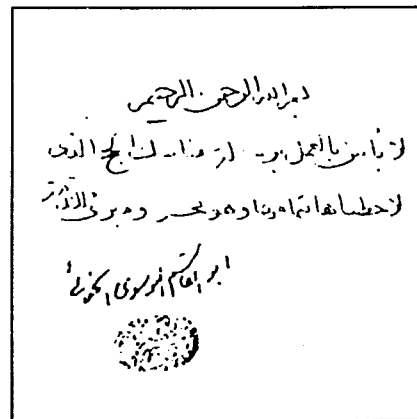 بسم الله الرحمن الرحيم
لا بأس بالعمل مناسك الحج
لاحظناها بتمامها وهو مجز ومبرئ للذمة
ابو القاسم الموسوي الخوئي